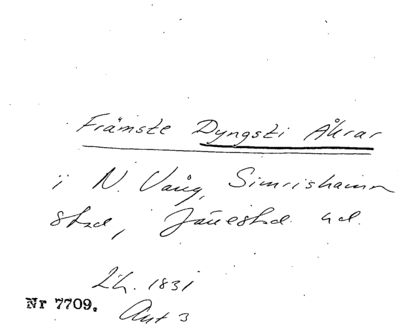 Främste Dyngsti Åkrar
i N. Vång, Simrishamn
stad, Järrestad hd.
Lh. 1831
Nr 7709. Akt 3